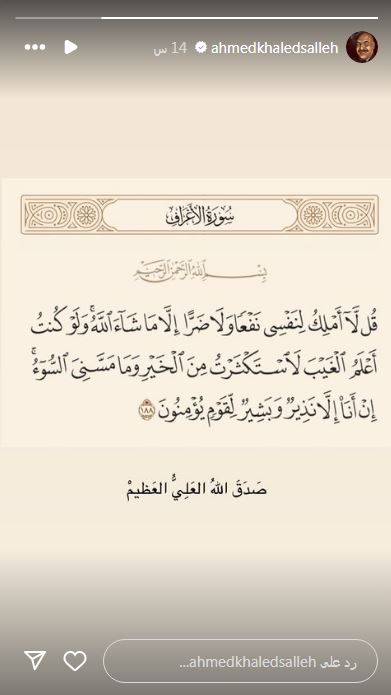 ahmedkhaledsalleh 14 س
سُورَةُ الأَعْرَافِ
بِسْمِ اللَّهِ الرَّحْمَٰنِ الرَّحِيمِ
قُل لَّآ أَمْلِكُ لِنَفْسِى نَفْعًا وَلَا ضَرًّا إِلَّا مَا شَآءَ ٱللَّهُ ۚ وَلَوْ كُنتُ
أَعْلَمُ ٱلْغَيْبَ لَٱسْتَكْثَرْتُ مِنَ ٱلْخَيْرِ وَمَا مَسَّنِىَ ٱلسُّوٓءُ ۚ
إِنْ أَنَا۠ إِلَّا نَذِيرٌ وَبَشِيرٌ لِّقَوْمٍ يُؤْمِنُونَ ١٨٨
صَدَقَ اللهُ العَلِيُّ العَظيمْ
رد على ahmedkhaledsalleh...